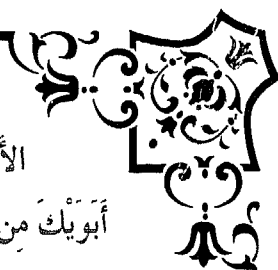 الأ
أَبَوَيْكَ مِن